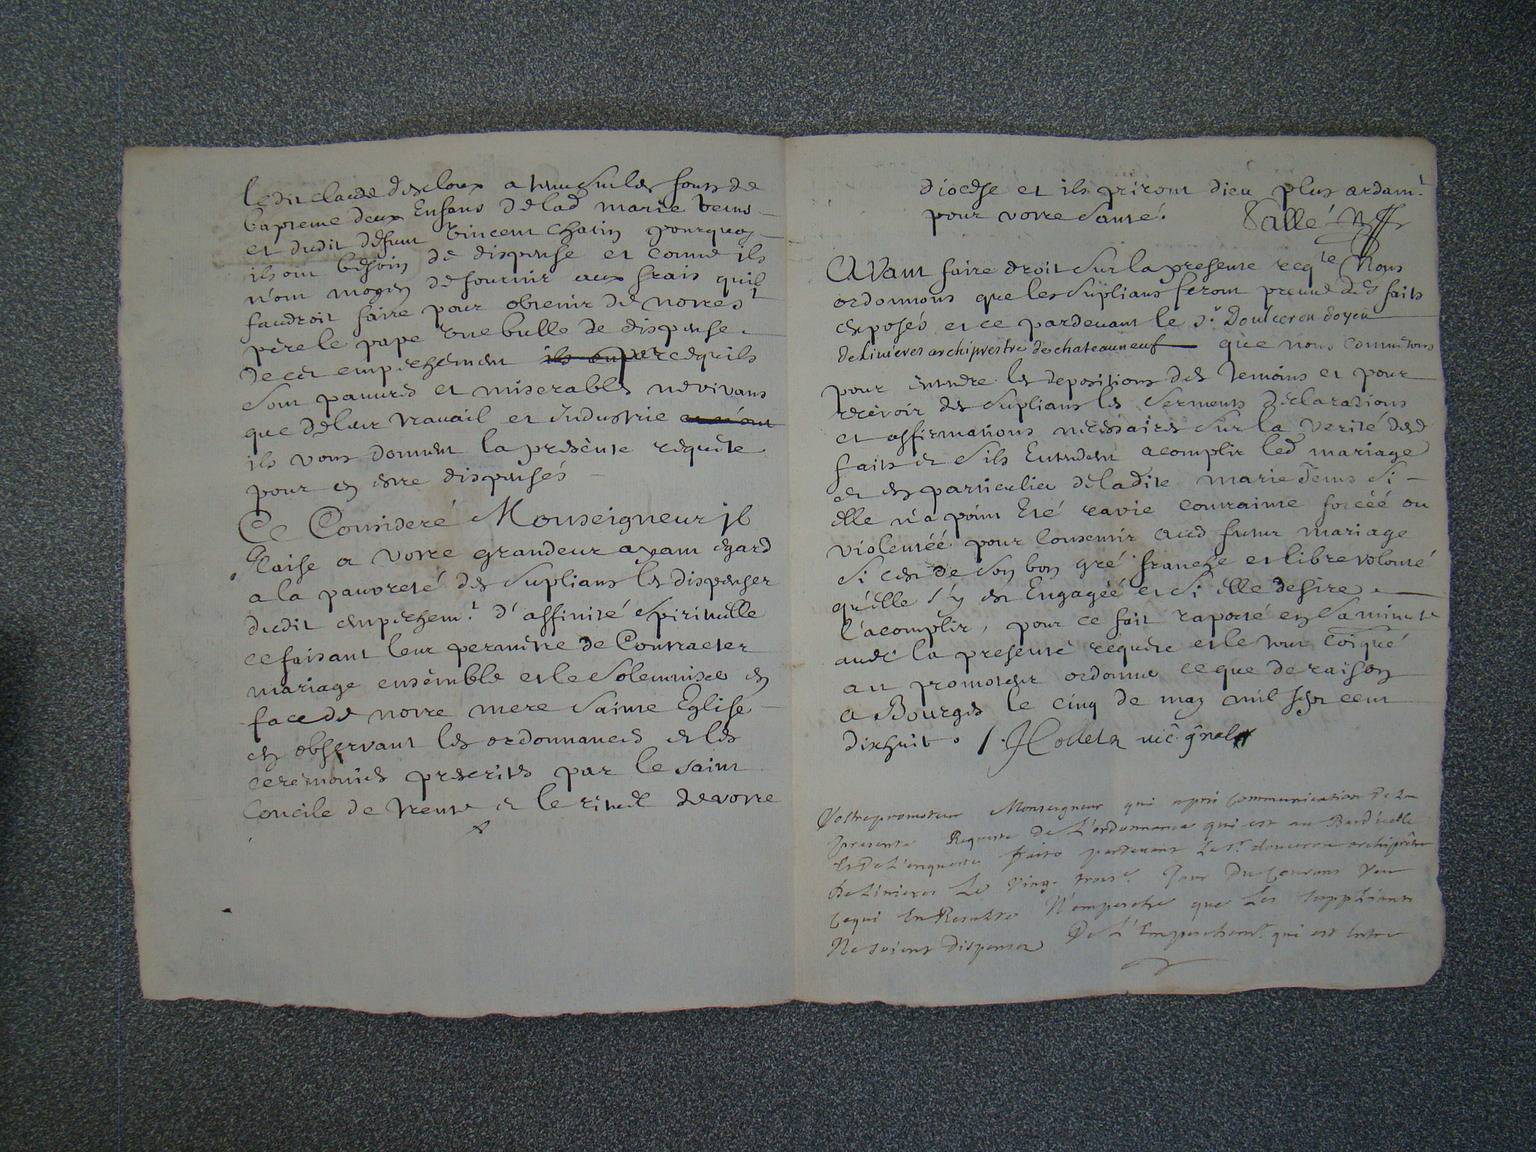 ledit claude descloux a tenu sur les fonts de
bapteme deux Enfans de lad marie Venis
et dudit defunt Vincent Chatin pourquoy
ils ont besoin de dispense et comme ils
n'ont moyen de fournir aux frais quil
faudroit faire pour obtenir de notre st
père le pape une bulle de dispense
de cet empeschement ils en parcequils
sont pauvres et miserables ne vivans
que de leur travail et Industrie
ils vous donnent la presente requete
pour en estre dispensés
Ce Consideré Monseigneur il
Plaise a votre grandeur ayant egard
a la pauvreté des suplians les dispenser
dudit empeschemt d'affinité spirituelle
ce faisant leur permettre de Contracter
mariage ensemble et le solemniser en
face de notre mere sainte Eglise
en observant les ordonnances et les
ceremonies prescrites par le saint
Concile de trente et le rituel de votre
diocese et ils priront dieu plus ardamt
pour votre santé. Sallé
Avant faire droit sur la presente reqte Nous
ordonnons que les suplians feront preuve des faits
exposés et ce pardevant le sr Doulceron doyen
de Linieres archiprestre de chateauneuf que nous commettons
pour entendre les depositions des temoins et pour
recevoir des suplians les serments declarations
et affirmations necessaires sur la verité desd
faits et sils Entendent acomplir led mariage
et en particulier de ladite marie Venis si
elle n'a point Eté ravie contrainte forcéé ou
violentéé pour consentir aud futur mariage
si c'est de son bon gré franche et libre volonté
qu'elle s'y est Engagéé et si elle desire
l'acomplir, pour ce fait raporté en sa minute
avec la presente requete et le tout coïqué
au promoteur ordonné ce que de raison
a Bourges le cinq de may mil sept cent
dixhuit. vic gnal
Vostre promoteur Monseigneur qui a pris Communication de la
presente Requeste de L'ordonnance qui est au Bas d'icelle
Et de L'enqueste faite pardevant Le sr doulceron archiprêtre
de Linieres Le vingt trois Jour du Courant Veu
Ce qui En Resulte N'empesche que Les supplians
Ne soient Dispensez De L'Empeschemt qui est Entre